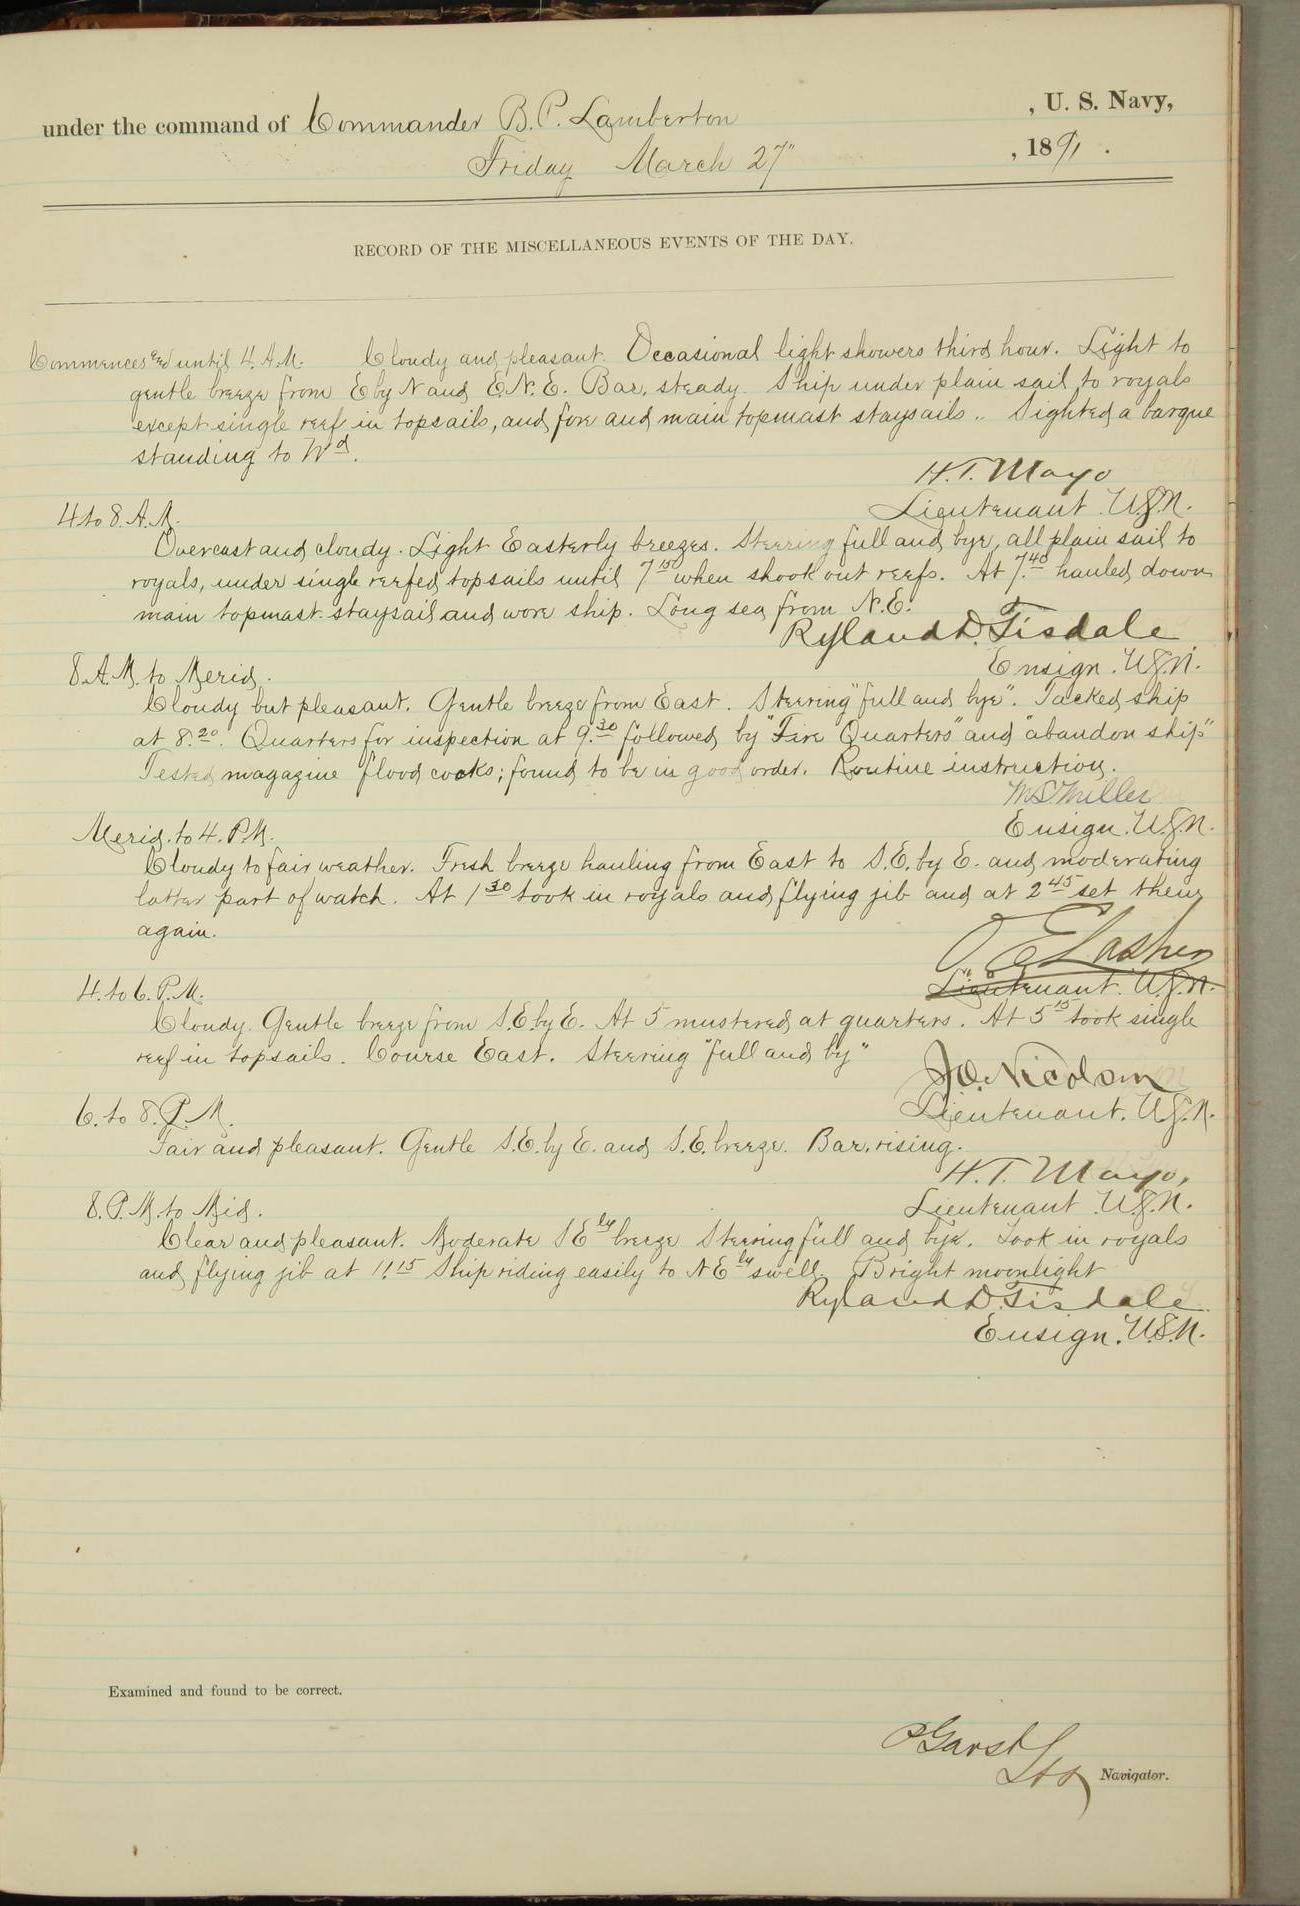 under the command of Commander B. P. Lamberton , U. S. Navy,
Friday March 27" , 1891 .
RECORD OF THE MISCELLANEOUS EVENTS OF THE DAY.
Commences and until 4. A.M. Cloudy and pleasant. Occasional light showers third hour. Light to
gentle breeze from E by N and E.N.E. Bar. steady. Ship under plain sail to royals
except single reef in topsails, and fore and main topmast staysails.. Sighted a barque
standing to Wd.
H. T. Mayo
Lieutenant. U.S.N.
4 to 8. A.M.
Overcast and cloudy. Light Easterly breezes. Steering full and bye, all plain sail to
royals, under single reefed topsails until 7.50 when shook out reefs. At 7.40 hauled down
main topmast staysail and wore ship. Long sea from N.E.
Ryland D. Tisdale
Ensign. U.S.N.
8. A.M. to Merid.
Cloudy but pleasant. Gentle breeze from East. Steering "full and bye". Tacked ship
at 8.20. Quarters for inspection at 9.30 followed by "Fire Quarters" and "abandon ship"
Tested magazine flood cocks; found to be in good order. Routine instruction.
M.S. Miller
Ensign. U.S.N.
Merid. to 4. P.M.
Cloudy to fair weather. Fresh breeze hauling from East to S.E. by E. and moderating
latter part of watch. At 1 30 took in royals and flying jib and at 2 45 set them
again.
O E Lasher
Lieutenant. U.S.N.
4. to 6. P.M.
Cloudy. Gentle breeze from S.E. by E. At 5 mustered at quarters. At 5 15 took single
reef in topsails. Course East. Steering "full and by"
J.O. Nicolson
Lieutenant. U.S.N.
6. to 8. P.M.
Fair and pleasant. Gentle S.E. by E. and S.E. breeze. Bar. rising.
H. T. Mayo,
Lieutenant. U.S.N.
8. P.M. to Mid.
Clear and pleasant. Moderate S Ely breeze Steering full and bye. Took in royals
and flying jib at 11.15 Ship riding easily to N Ely swell. Bright moonlight
Ryland D. Tisdale.
Ensign. U.S.N.
Examined and found to be correct.
P Garst
Lt Navigator.